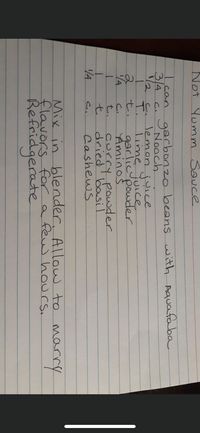 Not Yumm Sauce
1 can garbonzo beans with Aquafaba
3/4 c. Nooch
1/2 c. lemon juice
1 T. lime juice
2 t. garlic powder
1/4 c. Aminos
1 t. curry powder
1 t. dried basil
1/4 c. Cashews
Mix in blender. Allow to marry
flavors for a few hours.
Refridgerate